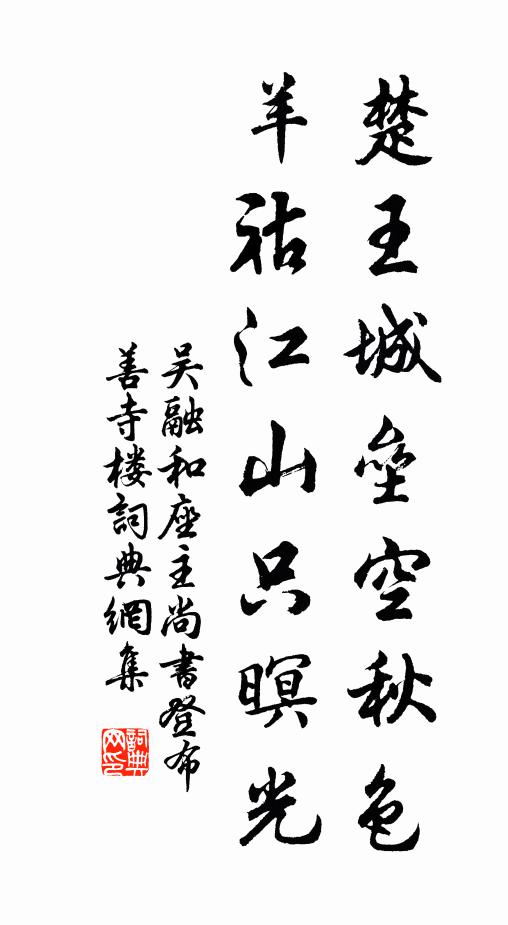 楚王城壘空秋色
羊祜江山只暝光
吴融和座主尚書登布
善寺楼詞典網集
詞典网印